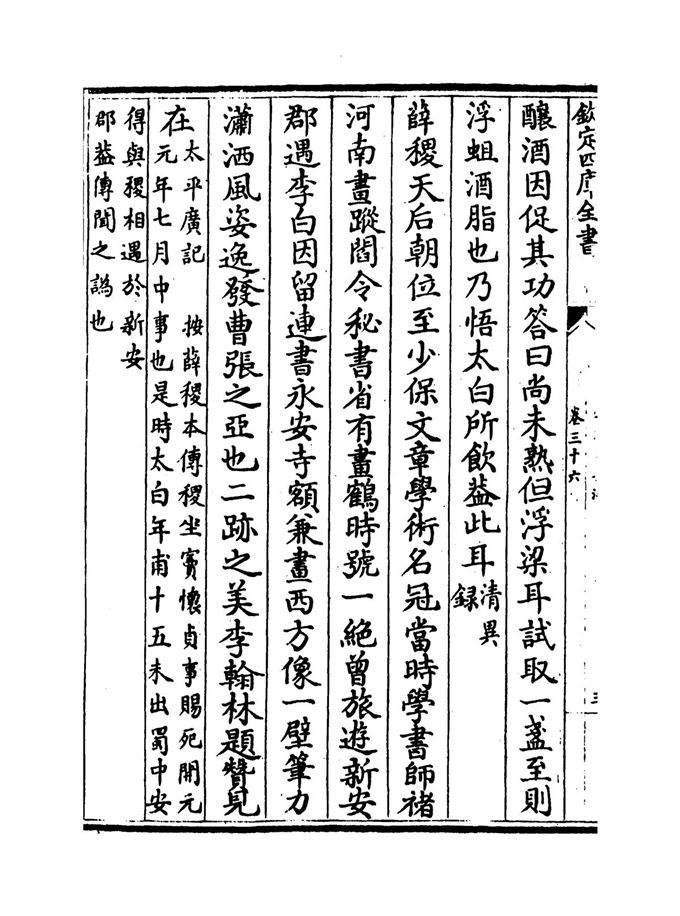 欽定四庫全書
卷三十六
釀酒因促其功答曰尚未熟但浮梁耳試取一盞至則
浮蛆酒脂也乃悟太白所飲葢此耳清異
録
薛稷天后朝位至少保文章學術名冠當時學書師禇
河南畫蹤閻令秘書省有畫鶴時號一絶曾旅遊新安
郡遇李白因留連書永安寺額兼畫西方像一壁筆力
瀟洒風姿逸發曹張之亞也二跡之美李翰林題贊見
在太平廣記　按薛稷本傳稷坐竇懷貞事賜死開元
元年七月中事也是時太白年甫十五未出蜀中安
得與稷相遇於新安
郡葢傳聞之譌也